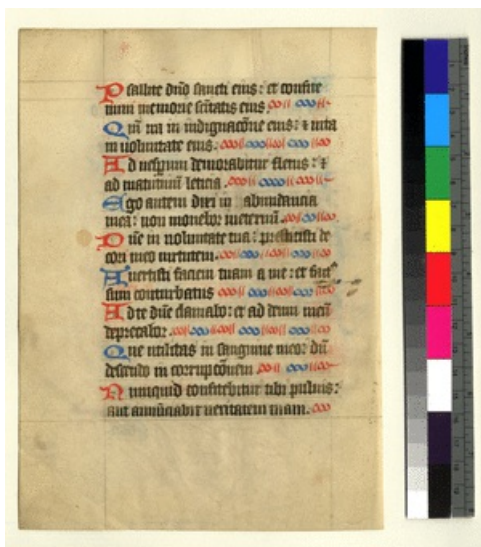 Psallite dño sancti eius: et confite
mini memorie scitatis eius
Qm̃ ira in indignacõne eius: ⁊ uita
in uoluntate eius.
Ad uesperum demorabitur fletus: ⁊
ad matutinũ leticia.
Ego autem dixi in abundancia
mea: non mouebor ineternũ.
Dñe in uoluntate tua: prestitisti de
cori meo uirtutem.
Auertisti faciem tuam a me: et fact
sum conturbatus
Ad te dñe clamabo: et ad deum meũ
deprecabor.
Que utilitas in sanguine meo: dũ
descendo in corrupcõnem
Numquid confitebitur tibi puluis:
aut annũciabit ueritatem tuam.